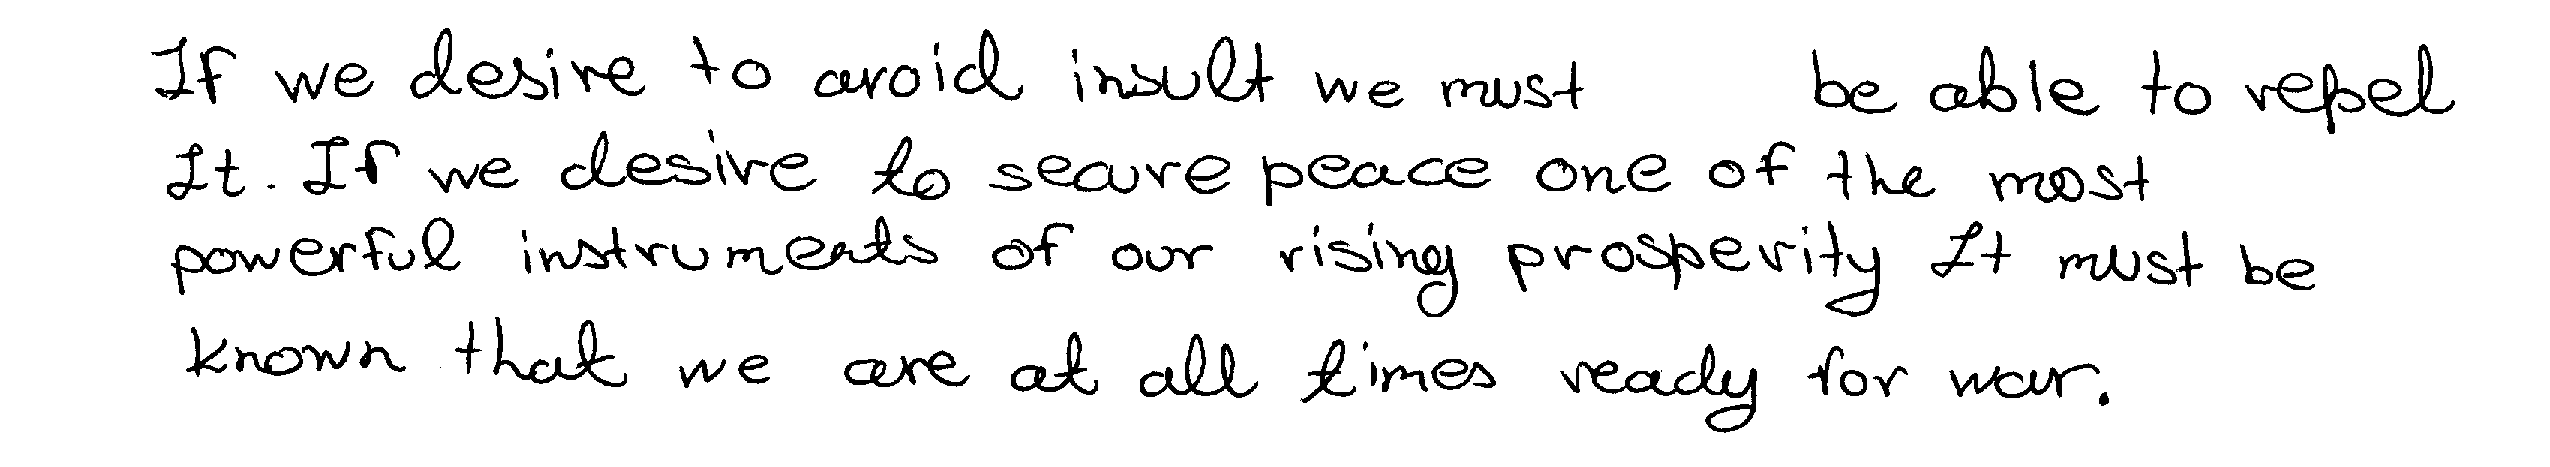 If we desire to avoid insult we must be able to repel
It. If we desire to secure peace one of the most
powerful instruments of our rising prosperity It must be
known that we are at all times ready for war.